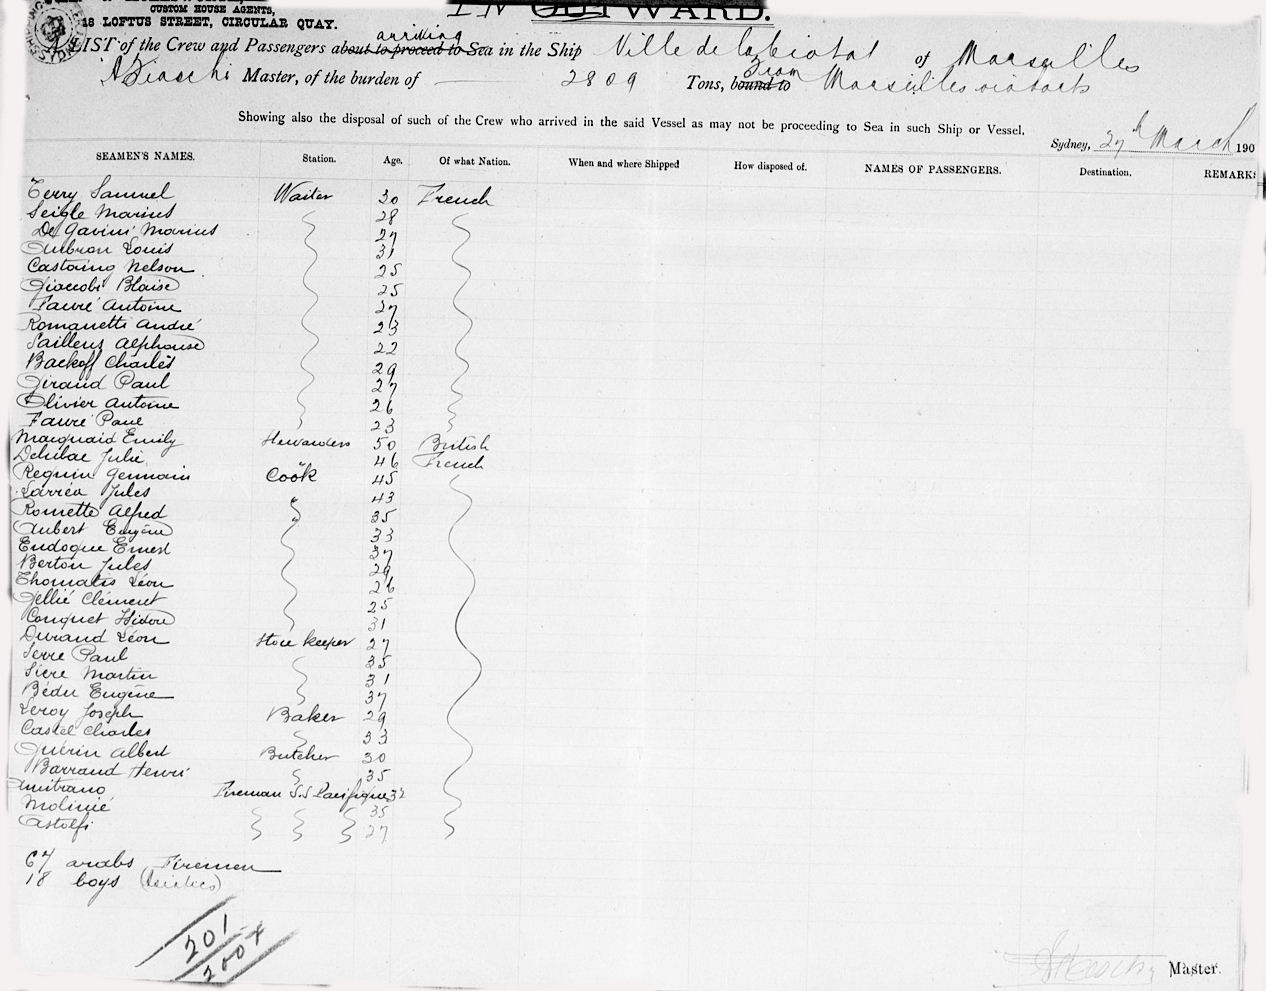 CUSTOM HOUSE AGENTS,
18 LOFTUS STREET, CIRCULAR QUAY.
INOUTWARD.
arriving
A LIST of the Crew and Passengers about to proceed to Sea in the Ship Ville de la Ciotat of Marseilles
Master, of the burden of 2809 Tons, bound to From Marseilles via ports
Showing also the disposal of such of the Crew who arrived in the said Vessel as may not be proceeding to Sea in such Ship or Vessel.
Sydney, 27th March 190
SEAMEN'S NAMES. Station. Age. Of what Nation. When and where Shipped How disposed of. NAMES OF PASSENGERS. Destination. REMARKS
Terry Samuel Waiter 30 French
Seigle Marius 28
De Gavini Marius 27
Aubron Louis 31
Castaing Nelson 25
Giacobi Blaise 25
Fauré Antoine 27
Romanetti André 23
Saillens Alphonse 22
Backoff Charles 29
Giraud Paul 27
Olivier Antoine 26
Fauré Paul 23
Emily Stewardess 50 British
Julie 46 French
Requin Germain Cook 45
Larréa Jules " 43
Romette Alfred " 35
Aubert Eugène 33
Eudoque Ernest 37
Berton Jules 29
Thomatis Léon 26
Gellié Clément 25
Conquet Isidore 31
Durand Léon Store keeper 27
Serre Paul 35
Siere Martin 31
Bédu Eugène 37
Leroy Joseph Baker 29
Castel Charles 33
Guérin Albert Butcher 30
Barraud Henri 35
Amitrano Fireman S.S Pacifique 32
Molinié 35
Astolfi 27
67 arabs Firemen
18 boys (Asiatics)
201
2004
Master.